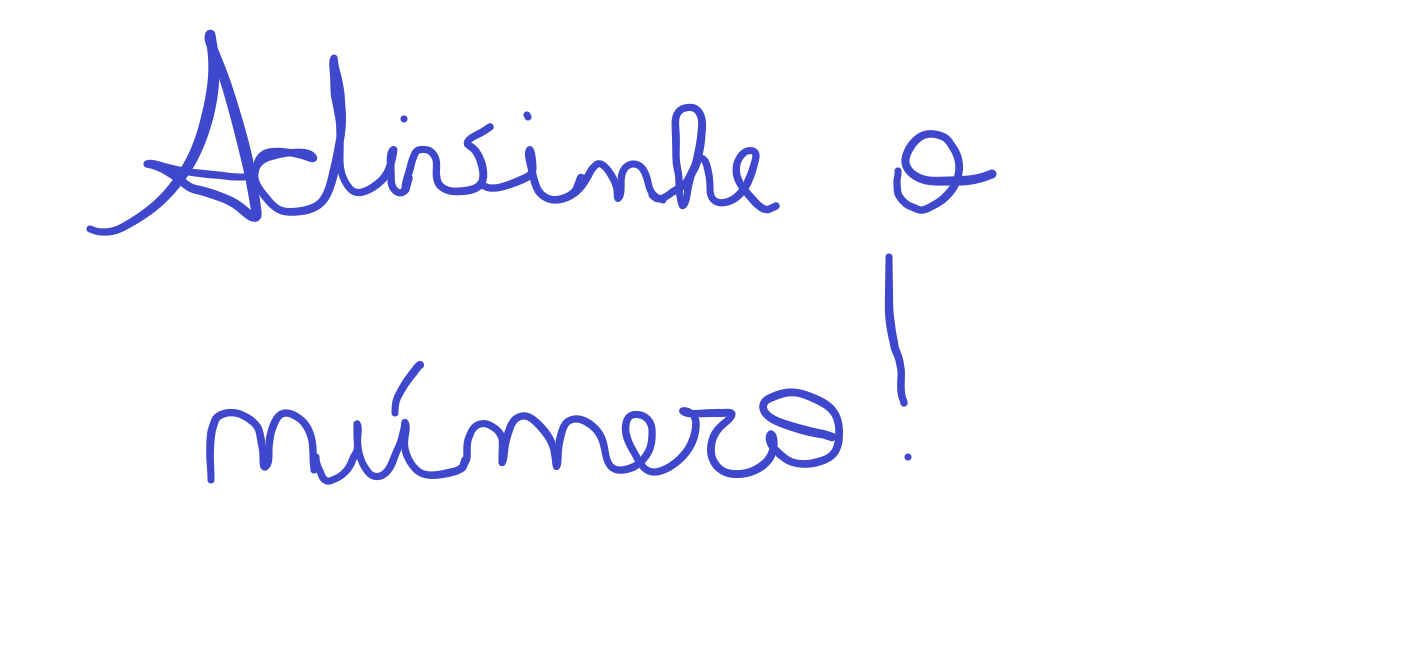 Adivinhe o
número!